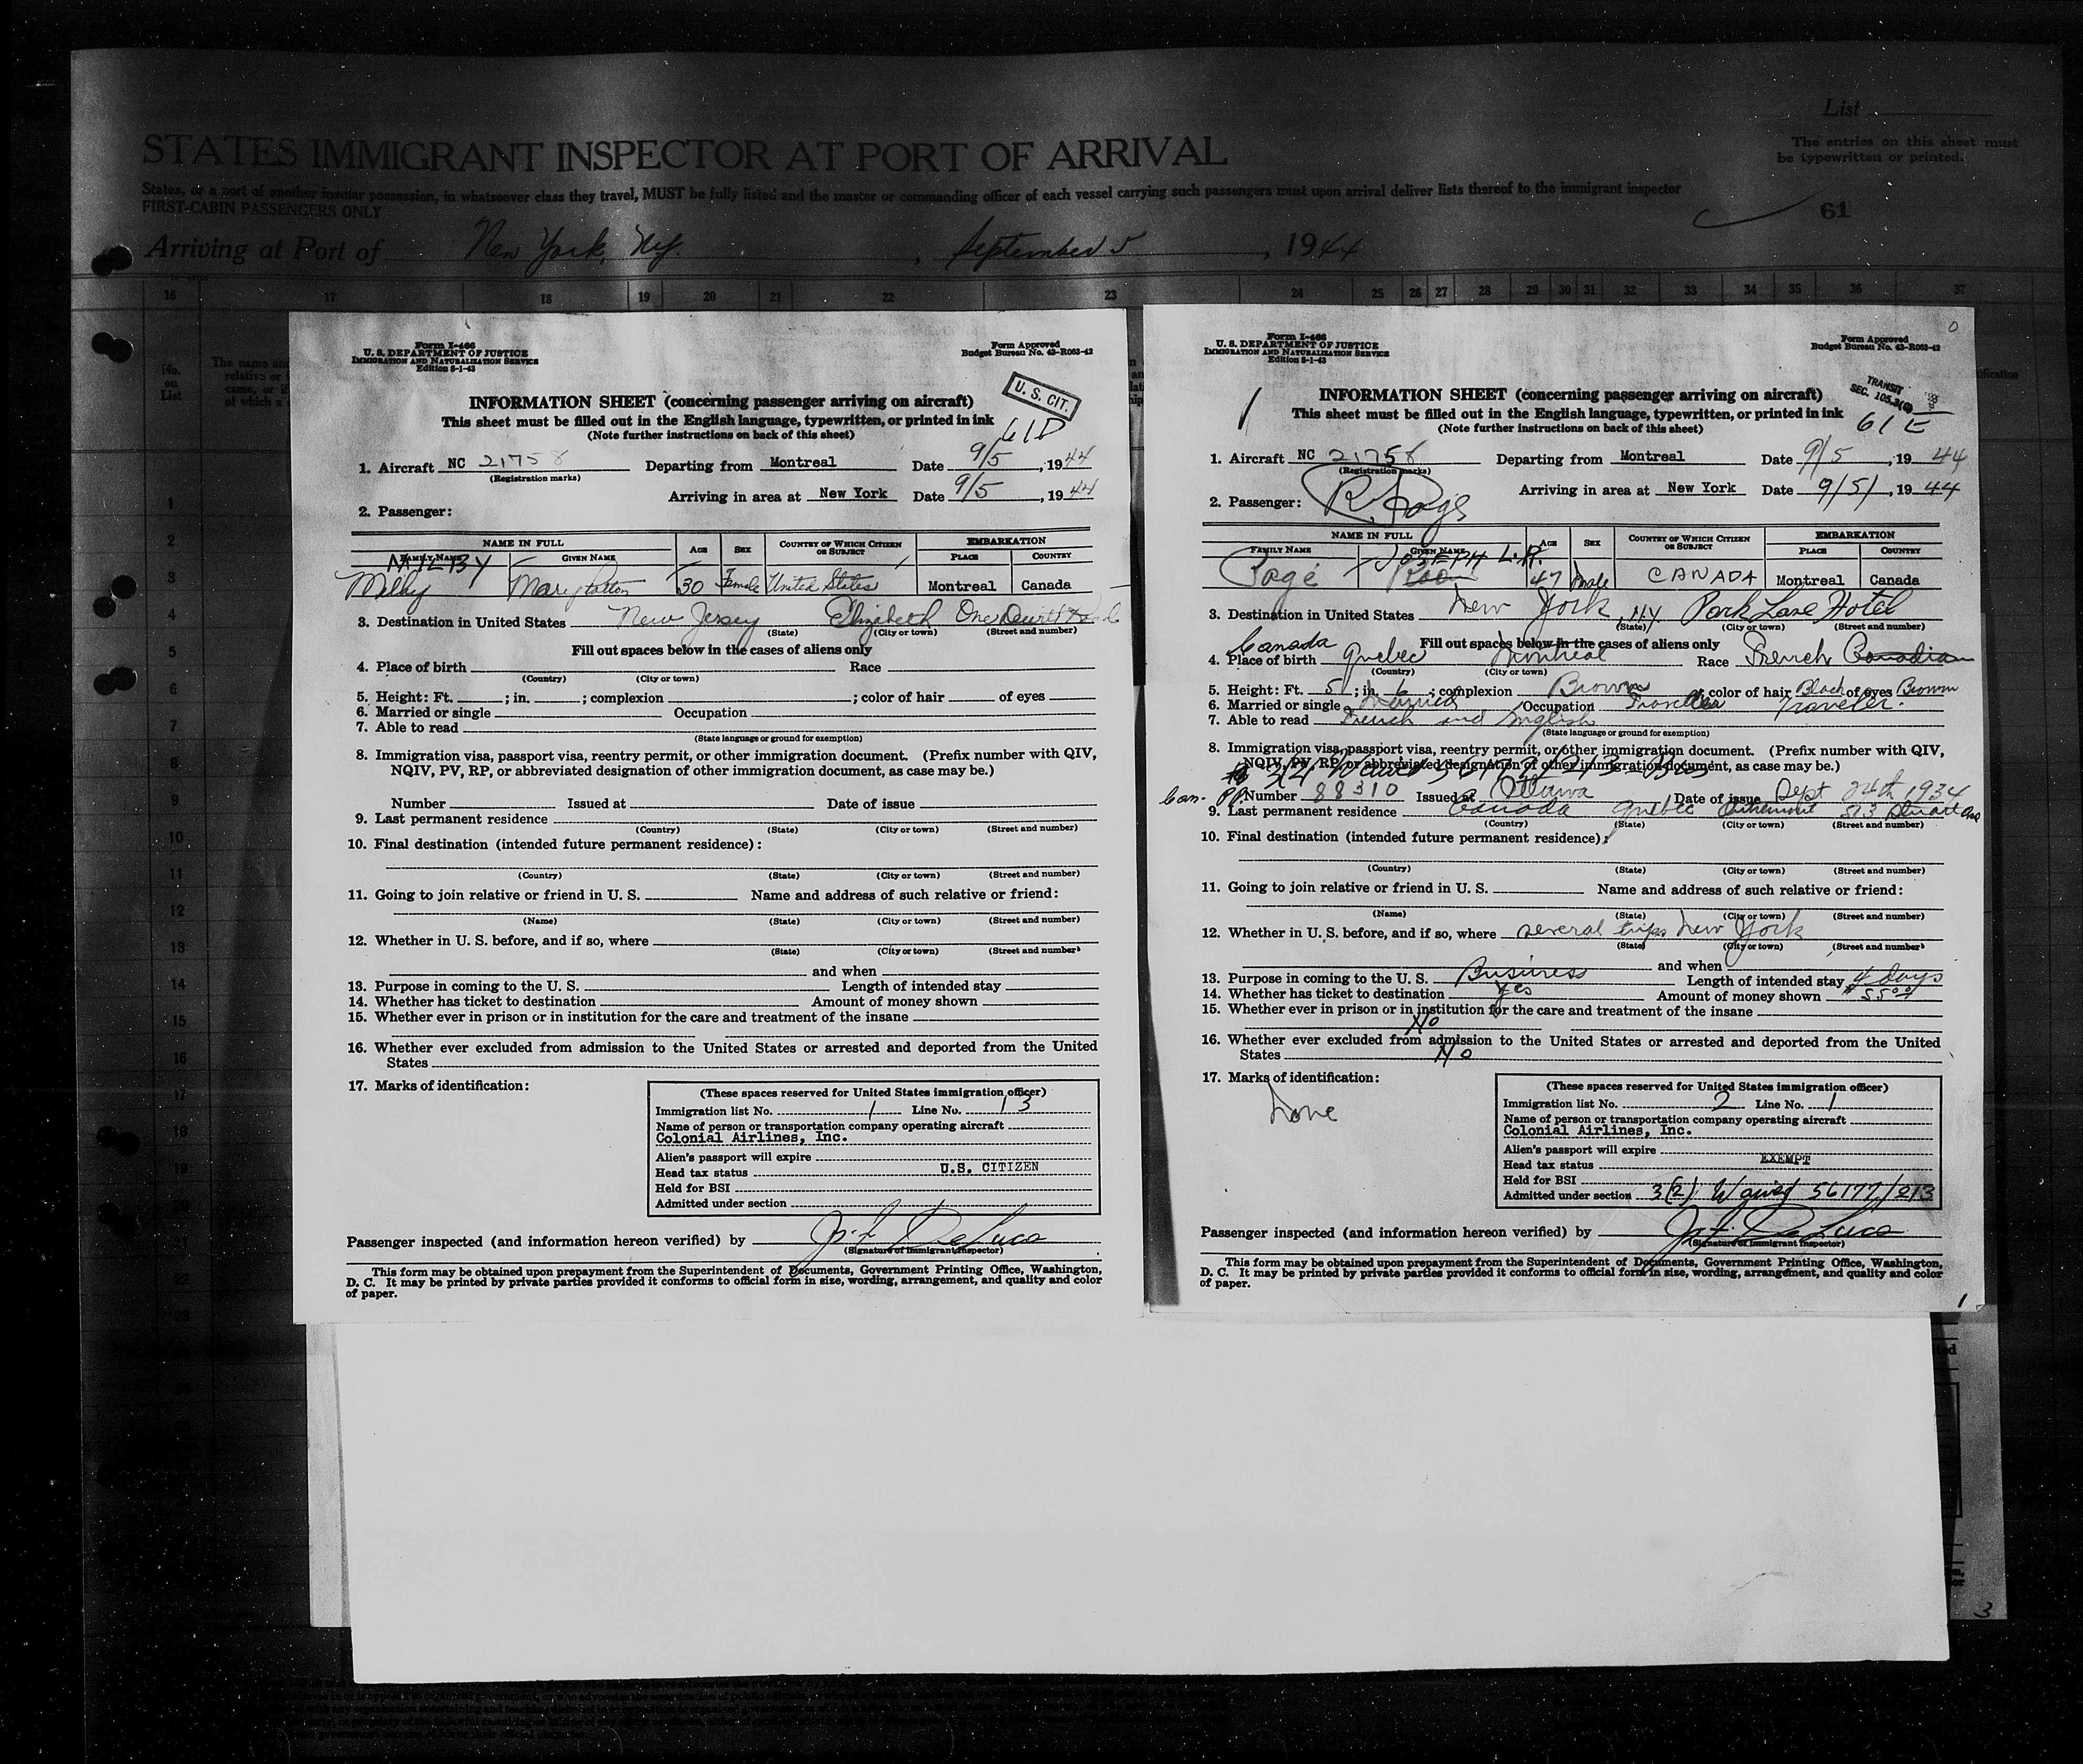 List
STATES IMMIGRANT INSPECTOR AT PORT OF ARRIVAL
The entries on this sheet must
be typewritten or printed.
States, or a port of another insular possession, in whatsoever class they travel, MUST be fully listed and the master or commanding officer of each vessel carrying such passengers must upon arrival deliver lists thereof to the immigrant inspector
FIRST-CABIN PASSENGERS ONLY
61
Arriving at Port of New York, N.Y. , September 5 , 1944
16 17 18 19 20 21 22 23 24 25 26 27 28 29 30 31 32 33 34 35 36 37
No.
on
List
Form I-466
U. S. DEPARTMENT OF JUSTICE
IMMIGRATION AND NATURALIZATION SERVICE
Edition 8-1-43
Form Approved
Budget Bureau No. 43-R063-42
U. S. CIT.
INFORMATION SHEET (concerning passenger arriving on aircraft)
This sheet must be filled out in the English language, typewritten, or printed in ink
(Note further instructions on back of this sheet)
61D
1. Aircraft NC 21758 Departing from Montreal Date 9/5, 1944
(Registration marks)
Arriving in area at New York Date 9/5, 1944
2. Passenger:
NAME IN FULL AGE SEX COUNTRY OF WHICH CITIZEN OR SUBJECT EMBARKATION
FAMILY NAME GIVEN NAME PLACE COUNTRY
30 Female United States Montreal Canada
3. Destination in United States New Jersey Elizabeth One
(State) (City or town) (Street and number)
Fill out spaces below in the cases of aliens only
4. Place of birth Race
(Country) (City or town)
5. Height: Ft. ; in. ; complexion ; color of hair of eyes
6. Married or single Occupation
7. Able to read
(State language or ground for exemption)
8. Immigration visa, passport visa, reentry permit, or other immigration document. (Prefix number with QIV,
NQIV, PV, RP, or abbreviated designation of other immigration document, as case may be.)
Number Issued at Date of issue
9. Last permanent residence
(Country) (State) (City or town) (Street and number)
10. Final destination (intended future permanent residence):
(Country) (State) (City or town) (Street and number)
11. Going to join relative or friend in U. S. Name and address of such relative or friend:
(Name) (State) (City or town) (Street and number)
12. Whether in U. S. before, and if so, where
(State) (City or town) (Street and number)
and when
13. Purpose in coming to the U. S. Length of intended stay
14. Whether has ticket to destination Amount of money shown
15. Whether ever in prison or in institution for the care and treatment of the insane
16. Whether ever excluded from admission to the United States or arrested and deported from the United
States
17. Marks of identification:
(These spaces reserved for United States immigration officer)
Immigration list No. 1 Line No. 13
Name of person or transportation company operating aircraft
Colonial Airlines, Inc.
Alien's passport will expire
Head tax status U.S. CITIZEN
Held for BSI
Admitted under section
Passenger inspected (and information hereon verified) by J. F. DeLuca
(Signature of Immigrant Inspector)
This form may be obtained upon prepayment from the Superintendent of Documents, Government Printing Office, Washington,
D. C. It may be printed by private parties provided it conforms to official form in size, wording, arrangement, and quality and color
of paper.
Form I-466
U. S. DEPARTMENT OF JUSTICE
IMMIGRATION AND NATURALIZATION SERVICE
Edition 8-1-43
Form Approved
Budget Bureau No. 43-R063-42
TRANSIT
INFORMATION SHEET (concerning passenger arriving on aircraft)
This sheet must be filled out in the English language, typewritten, or printed in ink
(Note further instructions on back of this sheet)
61E
1. Aircraft NC 21758 Departing from Montreal Date 9/5, 1944
(Registration marks)
Arriving in area at New York Date 9/5/, 1944
2. Passenger: R. Page
NAME IN FULL AGE SEX COUNTRY OF WHICH CITIZEN OR SUBJECT EMBARKATION
FAMILY NAME GIVEN NAME PLACE COUNTRY
Pagé JOSEPH L.R. 47 Male CANADA Montreal Canada
3. Destination in United States New York, N.Y. Park Lane Hotel
(State) (City or town) (Street and number)
Fill out spaces below in the cases of aliens only
4. Place of birth Canada Quebec Montreal Race French Canadian
(Country) (City or town)
5. Height: Ft. 5 ; in. 6 ; complexion Brown ; color of hair Black of eyes Brown
6. Married or single Married Occupation Traveller Traveler.
7. Able to read French and English
(State language or ground for exemption)
8. Immigration visa, passport visa, reentry permit, or other immigration document. (Prefix number with QIV,
NQIV, PV, RP, or abbreviated designation of other immigration document, as case may be.)
Can. PP. Number 88310 Issued at Ottawa Date of issue Sept 24th 1934
9. Last permanent residence Canada Quebec Outremont 513 Stuart Ave
(Country) (State) (City or town) (Street and number)
10. Final destination (intended future permanent residence):
(Country) (State) (City or town) (Street and number)
11. Going to join relative or friend in U. S. Name and address of such relative or friend:
(Name) (State) (City or town) (Street and number)
12. Whether in U. S. before, and if so, where several trips New York
(State) (City or town) (Street and number)
and when
13. Purpose in coming to the U. S. Business Length of intended stay 4 days
14. Whether has ticket to destination Yes Amount of money shown $55.00
15. Whether ever in prison or in institution for the care and treatment of the insane
No
16. Whether ever excluded from admission to the United States or arrested and deported from the United
States No
17. Marks of identification:
None
(These spaces reserved for United States immigration officer)
Immigration list No. 2 Line No. 1
Name of person or transportation company operating aircraft
Colonial Airlines, Inc.
Alien's passport will expire
Head tax status EXEMPT
Held for BSI
Admitted under section 3(2) Waived 56177/213
Passenger inspected (and information hereon verified) by J. F. DeLuca
(Signature of Immigrant Inspector)
This form may be obtained upon prepayment from the Superintendent of Documents, Government Printing Office, Washington,
D. C. It may be printed by private parties provided it conforms to official form in size, wording, arrangement, and quality and color
of paper.
1
3